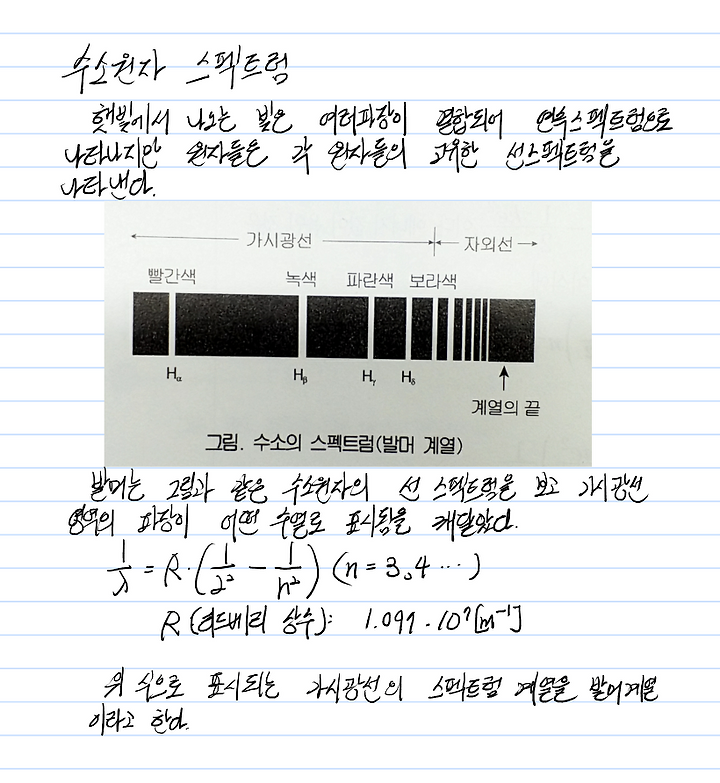 수소원자 스펙트럼
햇빛에서 나오는 빛은 여러파장이 결합되어 연속스펙트럼으로
나타나지만 원자들은 각 원자들의 고유한 선스펙트럼을
나타낸다.
가시광선 자외선
빨간색 녹색 파란색 보라색
Hα Hβ Hγ Hδ
계열의 끝
그림. 수소의 스펙트럼(발머 계열)
발머는 그림과 같은 수소원자의 선 스펙트럼을 보고 가시광선
영역의 파장이 어떤 수열로 표시됨을 깨달았다.
1/λ = R·(1/2² - 1/n²) (n = 3, 4 ···)
R (리드베리 상수): 1.097 · 10⁷[m⁻¹]
위 식으로 표시되는 가시광선의 스펙트럼 계열을 발머계열
이라고 한다.